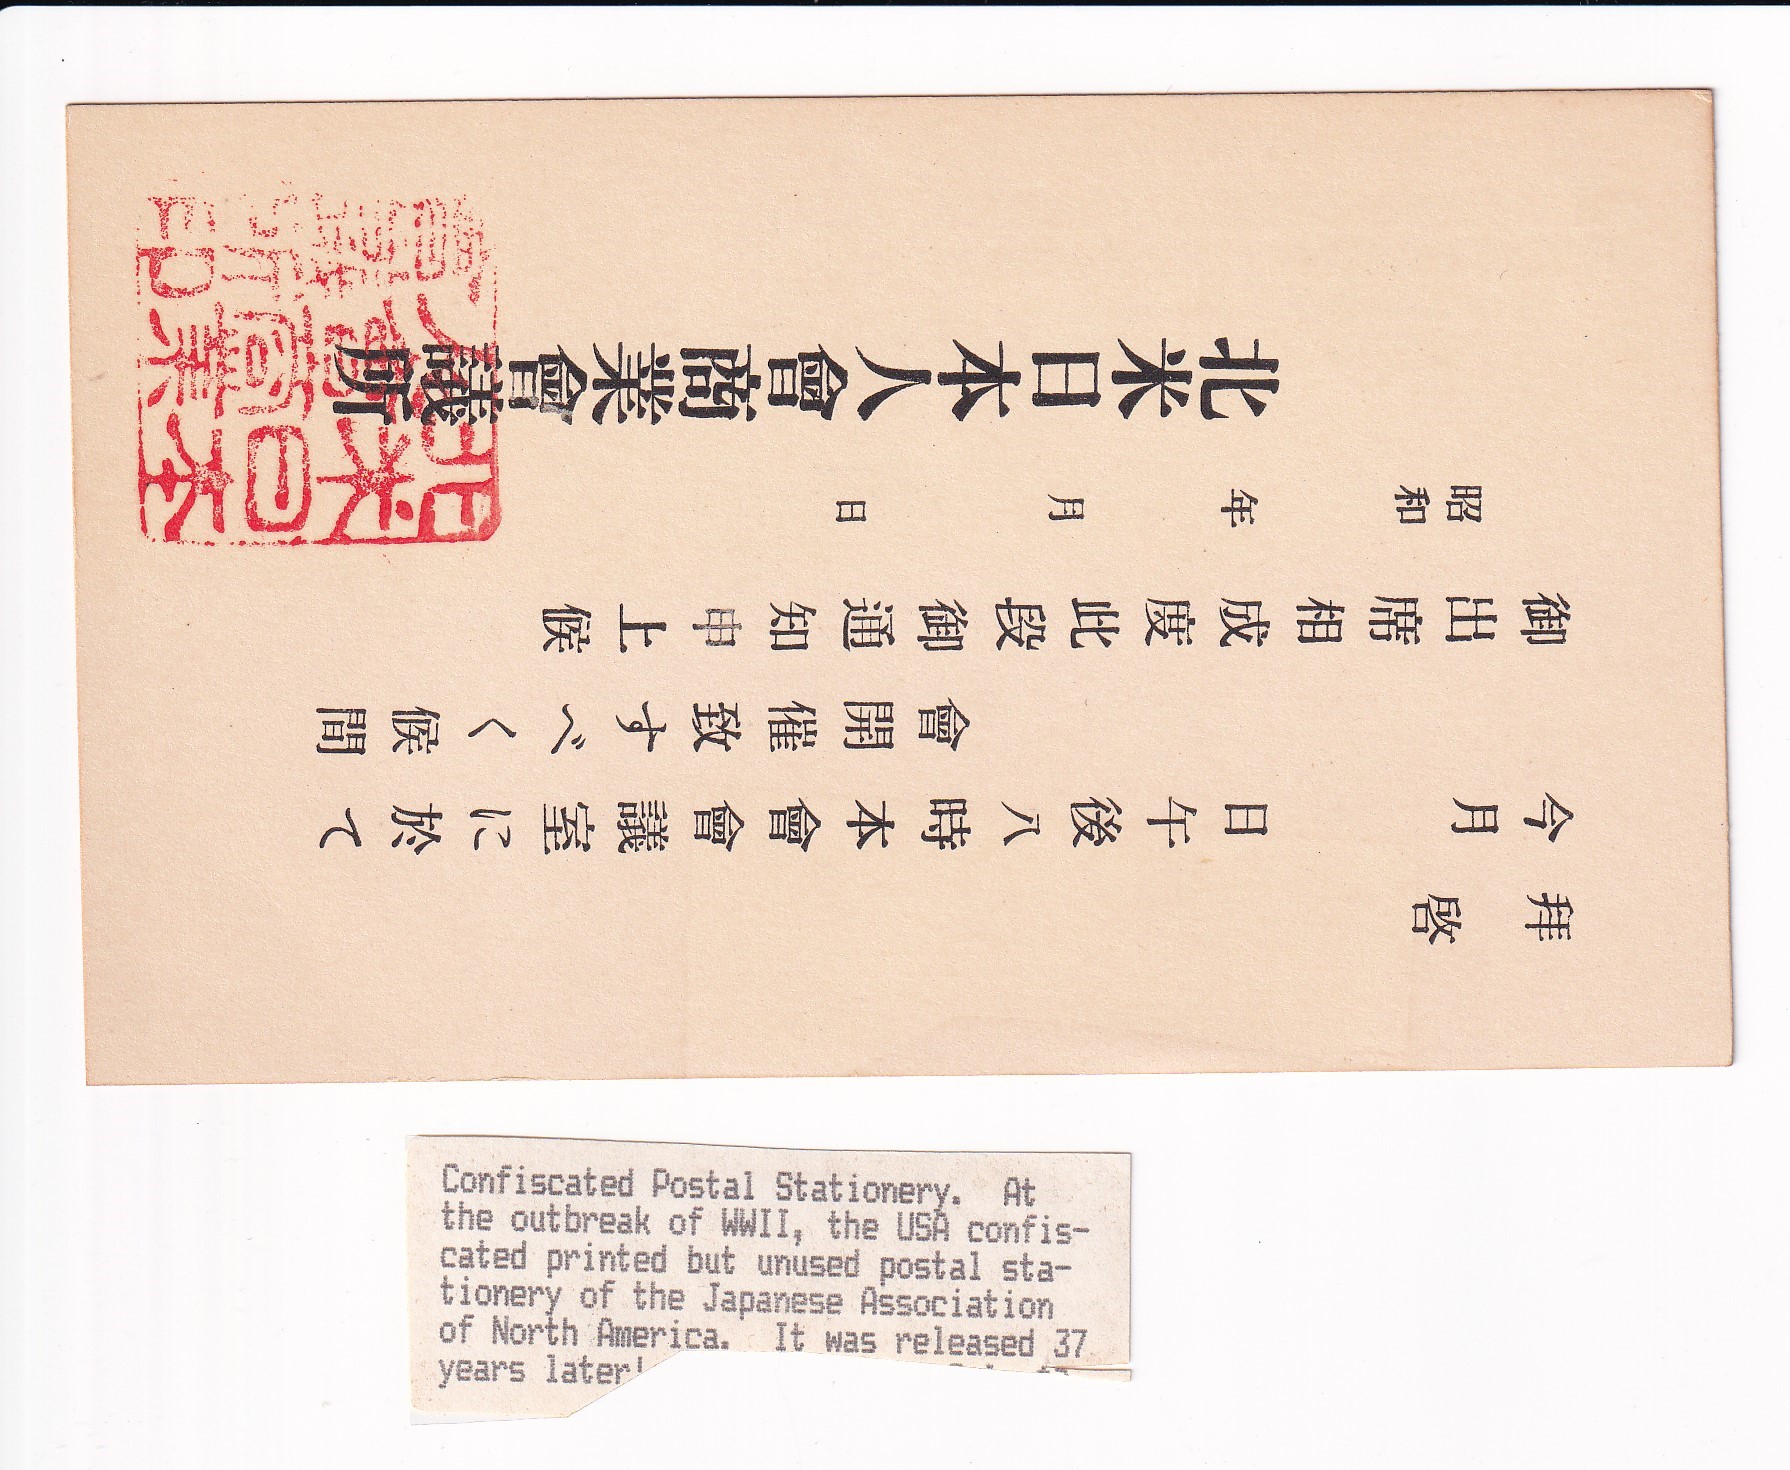 拜啓
今月　日午後八時本會會議室に於て
會開催致すべく候間
御出席相成度此段御通知申上候
昭和　年　月　日
北米日本人會商業會議所
北米日本
人會商業
會議所印
Confiscated Postal Stationery. At
the outbreak of WWII, the USA confis-
cated printed but unused postal sta-
tionery of the Japanese Association
of North America. It was released 37
years later!